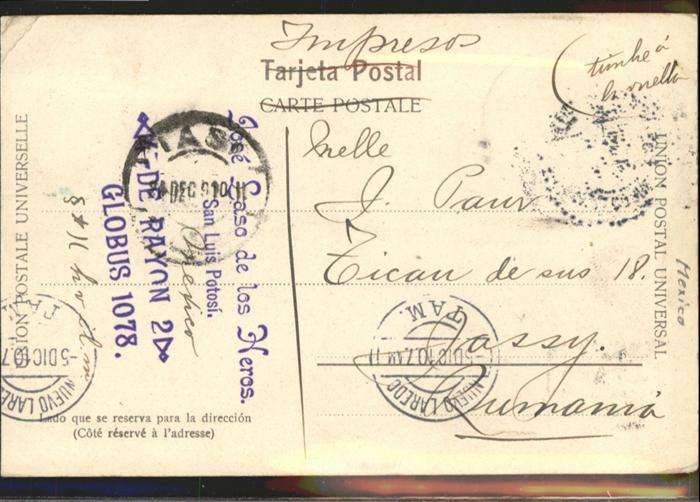 Impresos
Tarjeta Postal
CARTE POSTALE
timbre á
la vuelta
UNION POSTALE UNIVERSELLE
UNION POSTAL UNIVERSAL
Mexico
José Laso de los Heros.
San Luis Potosí,
Mexico
4ª DE RAYON 2
GLOBUS 1078.
IAS
DEC 910
Melle
J. Paur
Ticau de sus 18.
Jassy.
Rumania
TAM.
-5 DIC 10 7 AM
NUEVO LAREDO
-5 DIC 10 7
NUEVO LARE
Lado que se reserva para la dirección
(Côté réservé à l'adresse)